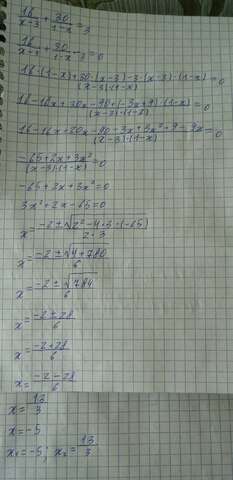 16/(x-3) + 30/(1-x) = 3
16/(x-3) + 30/(1-x) - 3 = 0
16·(1-x)+30·(x-3)-3·(x-3)·(1-x)/(x-3)·(1-x) = 0
16-16x+30x-90+(-3x+9)·(1-x)/(x-3)·(1-x) = 0
16-16x+30x-90-3x+3x²+9-9x/(x-3)·(1-x) = 0
-65+2x+3x²/(x-3)·(1-x) = 0
-65+2x+3x²=0
3x²+2x-65=0
x = -2±√2²-4·3·(-65)/2·3
x = -2±√4+780/6
x = -2±√784/6
x = -2±28/6
x = -2+28/6
x = -2-28/6
x = 13/3
x = -5
x₁=-5; x₂= 13/3